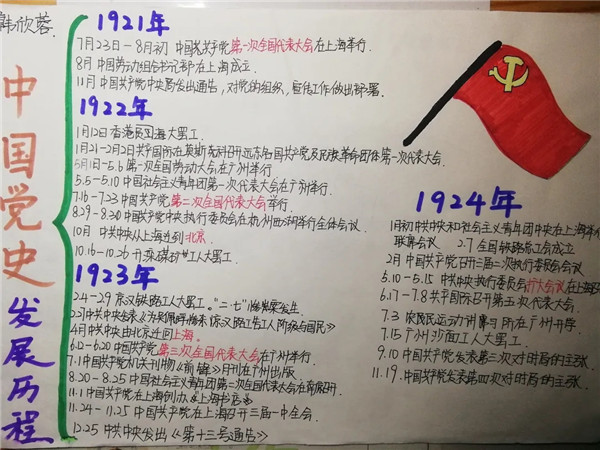 韩欣蓉.
中国党史
发展历程
1921年
7月23日-8月初 中国共产党第一次全国代表大会在上海举行.
8月 中国劳动组合书记部在上海成立.
11月 中国共产党中央局发出通告,对党的组织,宣传工作做出部署.
1922年
1月12日香港海员大罢工.
1月21-2月2日共产国际在莫斯科召开远东各国共产党及民族革命团体第一次代表大会.
5月1日-5.6 第一次全国劳动大会在广州举行.
5.5-5.10 中国社会主义青年团第一次代表大会在广州举行.
7.16-7.23 中国共产党 第二次全国代表大会举行.
8.29-8.30 中国共产党中央执行委员会在杭州西湖举行全体会议.
10月 中共中央从上海迁到北京.
10.16-10.26 开滦煤矿工人大罢工.
1923年
2.4-2.9 京汉铁路工人大罢工."二·七"惨案发生.
4月中共中央由北京迁回上海.
6.12-6.20 中国共产党 第三次全国代表大会在广州举行.
7.1 中国共产党机关刊物《前锋》月刊在广州出版
8.20-8.25 中国社会主义青年团第二次全国代表大会在南京召开.
11.1 中国共产党在上海创办《上海书店》
11.24-11.25 中国共产党在上海召开三届一中全会.
12.25 中共中央发出《第十三号通告》
1924年
1月初中共中央和社会主义青年团中央在上海举行
联席会议 2.7 全国铁路总工会成立
2月 中国共产党召开三届二次执行委员会会议
5.10-5.15 中共中央执行委员会扩大会议在上海召
6.17-7.8 共产国际召开第五次代表大会.
7.3 农民运动讲习所在广州开学.
7.15 广州沙面工人大罢工.
9.10 中国共产党发表第三次对时局的主张.
11.19. 中国共产党发表第四次对时局的主张.